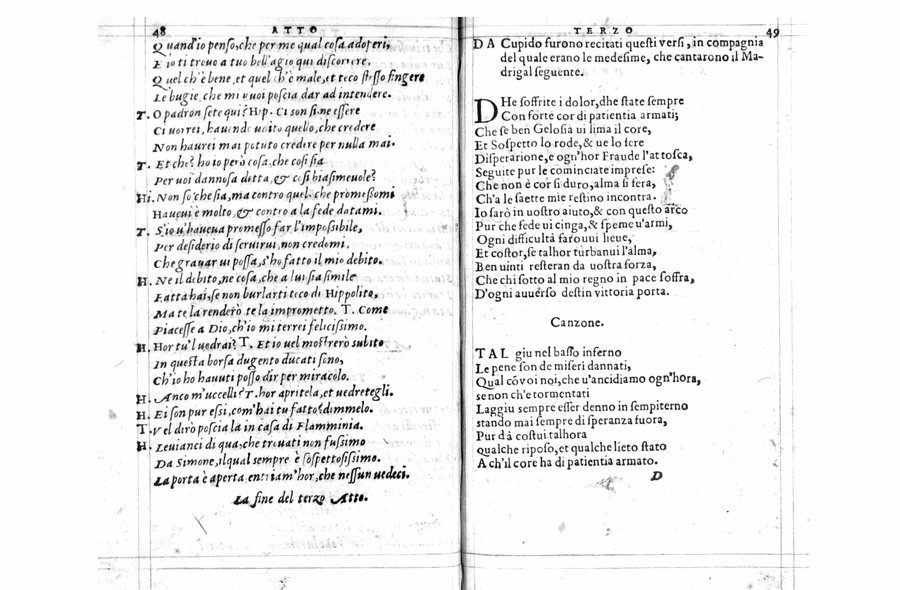 48 ATTO
Quand'io penso, che per me qual cosa adoperi,
E io ti trovo a tuo bell'agio qui discorrere,
Quel ch'è bene, et quel ch'è male, et teco stesso fingere
Le bugie, che mi vuoi poscia dar ad intendere.
T. O padron sete qui? Hip. Ci son si. ne essere
Ci vorrei, havendo udito quello, che credere
Non haurei mai potuto credere per nulla mai.
T. Et che? ho io però cosa, che così sia
Per voi dannosa detta, & così biasimevole?
Hi. Non so che sia, ma contro quel, che promessomi
Haueui è molto, & contro a la fede datami.
T. S'io v'haueua promesso far l'impossibile,
Per desiderio di seruirui, non credomi,
Che gravar vi possa, s'ho fatto il mio debito.
H. Ne il debito, ne cosa, che a lui sia simile
Fatta hai, se non burlarti teco di Hippolito,
Ma te la renderò te la imprometto. T. Come
Piacesse a Dio, ch'io mi terrei felicissimo.
H. Hor tu'l uedrai? T. Et io uel mostrerò subito
In questa borsa dugento ducati sono,
Ch'io ho hauuti posso dir per miracolo.
H. Anco m'uccelli? T. hor apritela, et uedretegli.
H. Ei son pur essi, com'hai tu fatto? dimmelo.
T. Vel dirò poscia là in casa di Flamminia.
H. Leuianci di qua, che trouati non fussimo
Da Simone, il qual sempre è sospettosissimo.
La porta è aperta, entriam'hor, che nessun uedeci.
La fine del terzo Atto.
TERZO 49
DA Cupido furono recitati questi versi, in compagnia
del quale erano le medesime, che cantarono il Ma-
drigal seguente.
DHe soffrite i dolor, dhe state sempre
Con forte cor di patientia armati;
Che se ben Gelosia ui lima il core,
Et Sospetto lo rode, & ue lo fere
Disperatione, e ogn'hor Fraude l'attosca,
Seguite pur le cominciate imprese:
Che non è cor sì duro, alma sì fera,
Ch'a le saette mie restino incontra.
Io sarò in uostro aiuto, & con questo arco
Pur che fede ui cinga, & speme u'armi,
Ogni difficultà farouui lieue,
Et costor, se talhor turbanui l'alma,
Ben uinti resteran da uostra forza,
Che chi sotto al mio regno in pace soffra,
D'ogni auuerso destin vittoria porta.
Canzone.
TAL giu nel basso inferno
Le pene son de miseri dannati,
Qual cō voi noi, che u'ancidiamo ogn'hora,
se non ch'e tormentati
Laggiu sempre esser denno in sempiterno
stando mai sempre di speranza fuora,
Pur dà costui talhora
Qualche riposo, et qualche lieto stato
A ch'il core ha di patientia armato.
D